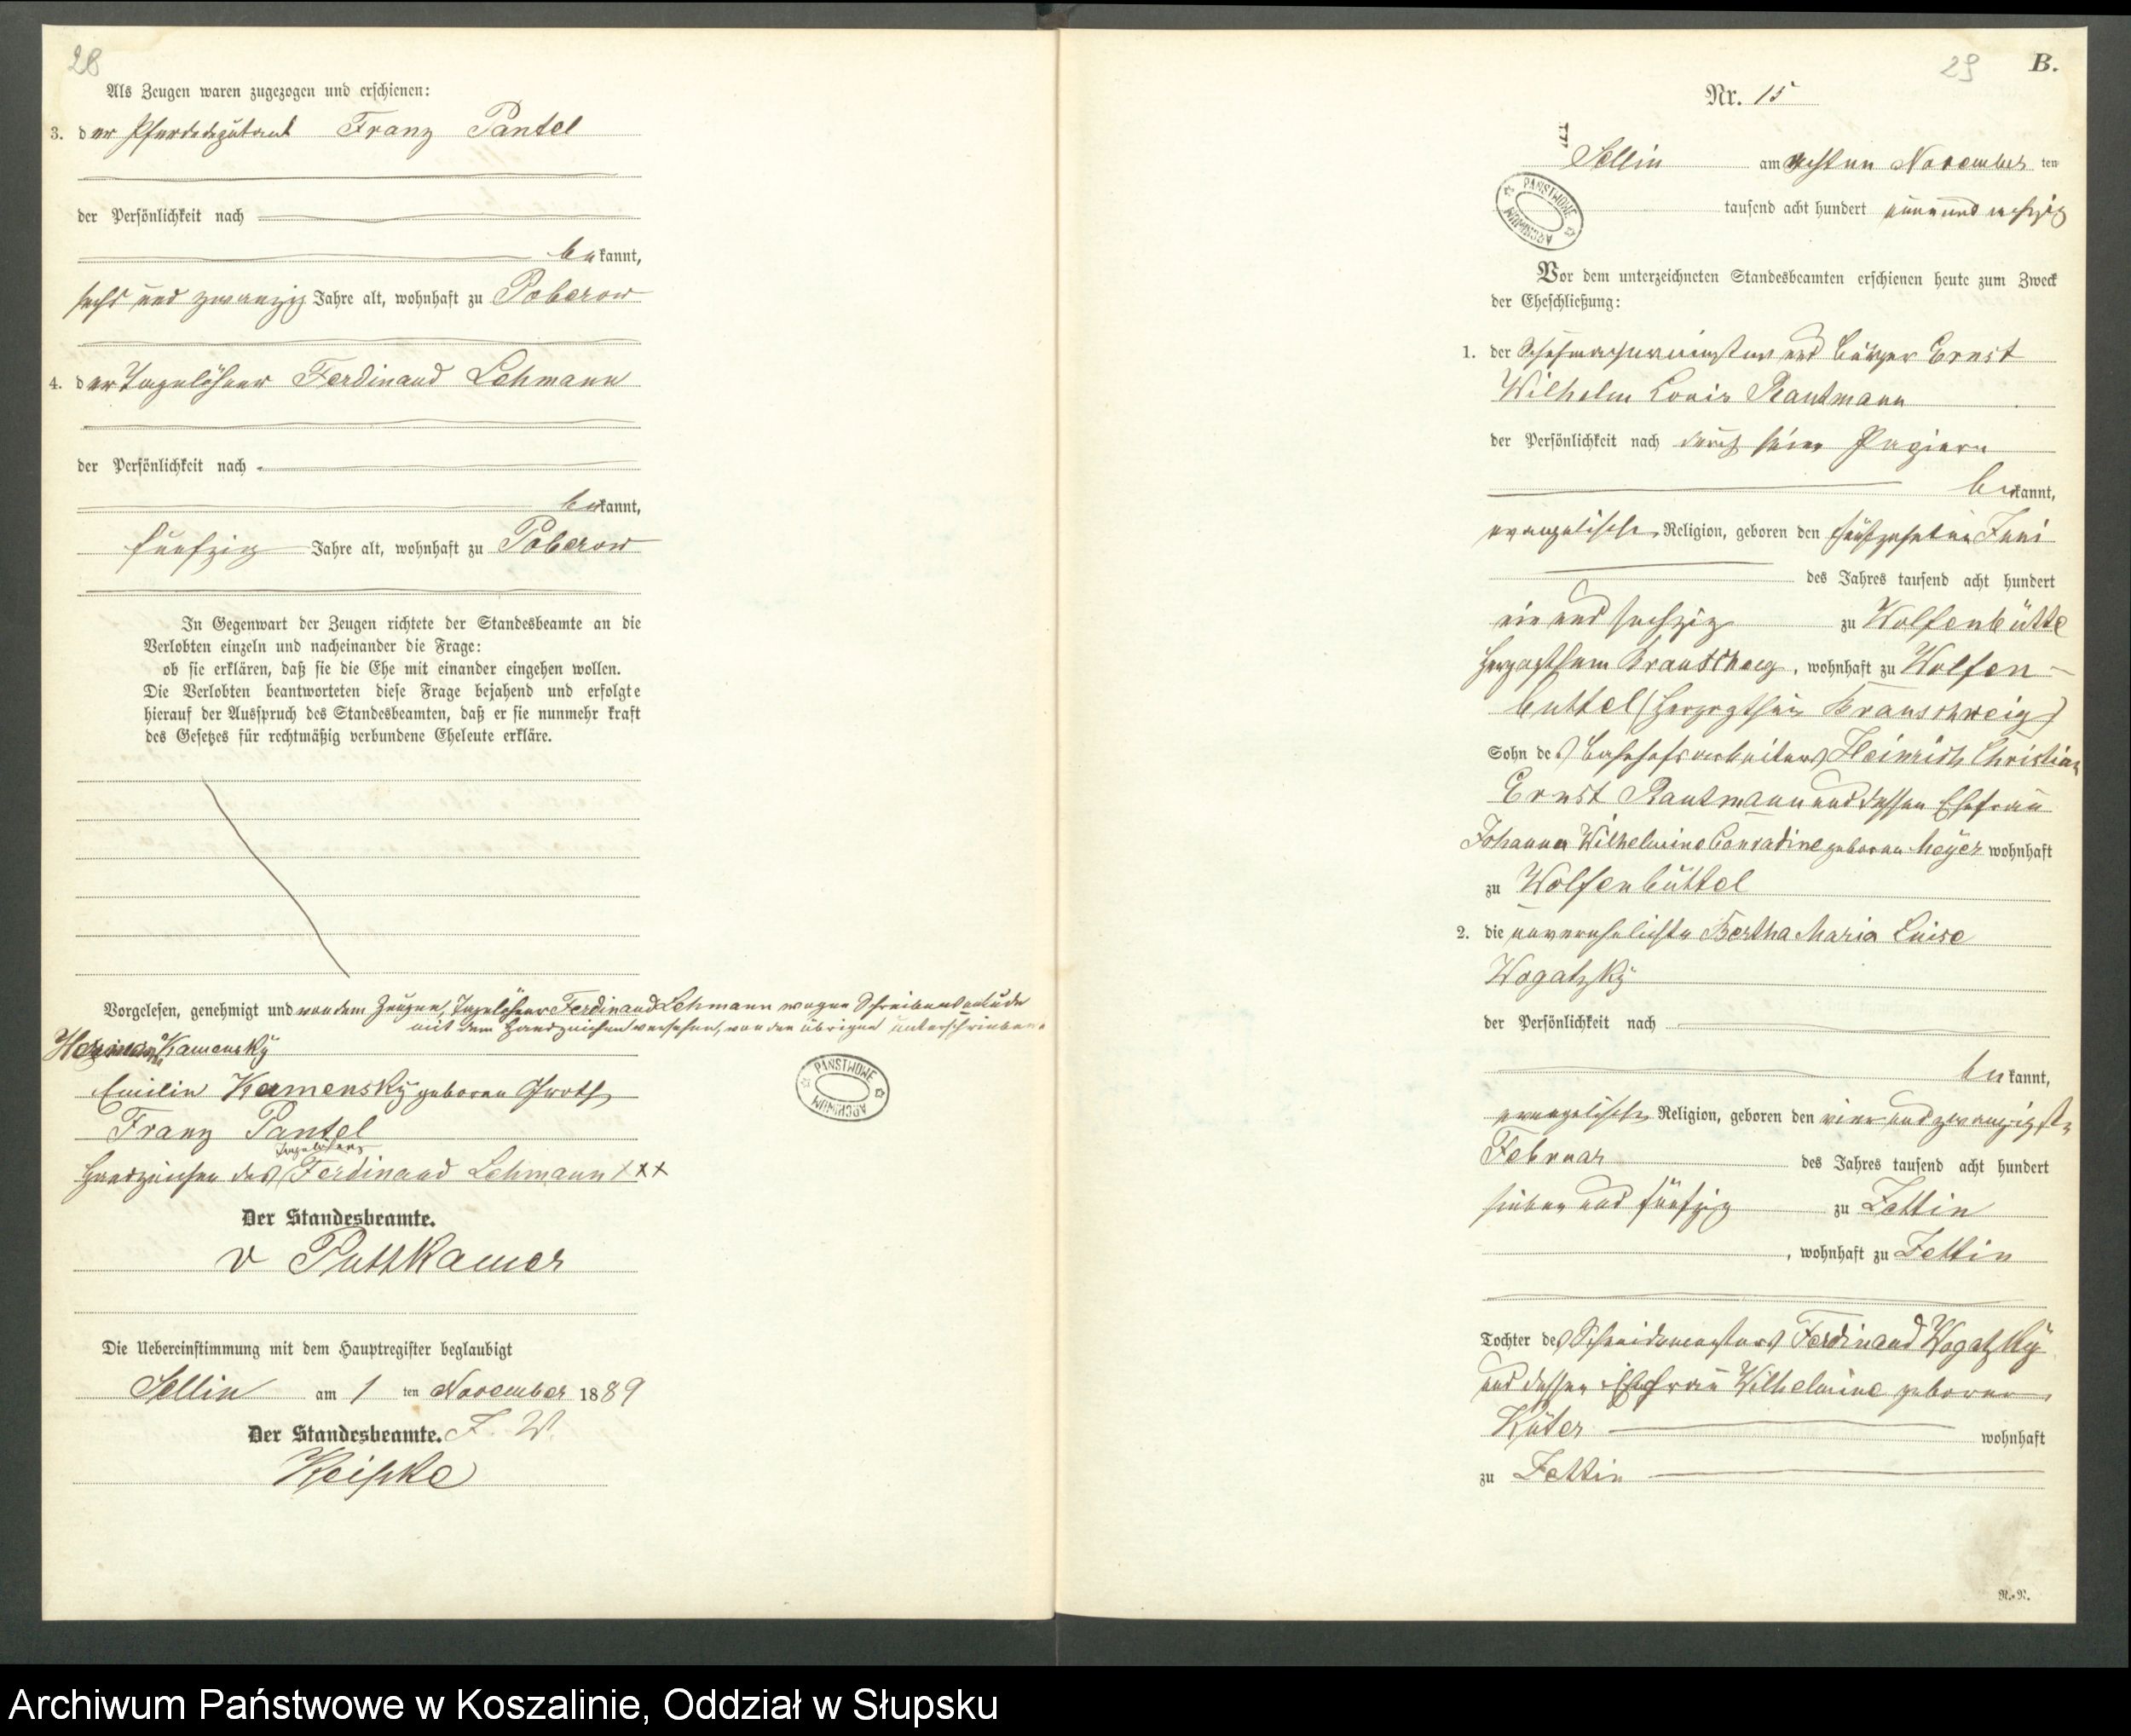 28
Als Zeugen waren zugezogen und erschienen:
3. der Pferdedeputant Franz Pantel
der Persönlichkeit nach
bekannt,
sechs und zwanzig Jahre alt, wohnhaft zu Poberow
4. der Tagelöhner Ferdinand Lehmann
der Persönlichkeit nach
bekannt,
fünfzig Jahre alt, wohnhaft zu Poberow
In Gegenwart der Zeugen richtete der Standesbeamte an die
Verlobten einzeln und nacheinander die Frage:
ob sie erklären, daß sie die Ehe mit einander eingehen wollen.
Die Verlobten beantworteten diese Frage bejahend und erfolgte
hierauf der Ausspruch des Standesbeamten, daß er sie nunmehr kraft
des Gesetzes für rechtmäßig verbundene Eheleute erkläre.
Vorgelesen, genehmigt und von dem Zeugen, Tagelöhner Ferdinand Lehmann wegen Schreibensunkunde
mit dem Handzeichen versehen, von den übrigen unterschrieben.
Kamensky
Emilie Kamensky geborene Groth
Franz Pantel
Tagelöhners
Handzeichen des Ferdinand Lehmann xxx
Der Standesbeamte.
v Puttkamer
Die Uebereinstimmung mit dem Hauptregister beglaubigt
Sellin am 1 ten November 1889
Der Standesbeamte.
PAŃSTWOWE ARCHIWUM
29 B.
Nr. 15
Sellin am achten November ten
tausend acht hundert neun und achtzig
PAŃSTWOWE ARCHIWUM
Vor dem unterzeichneten Standesbeamten erschienen heute zum Zweck
der Eheschließung:
1. der Schuhmachermeister und Bürger Ernst
Wilhelm Louis Rautmann
der Persönlichkeit nach durch seine Papiere
bekannt,
evangelischer Religion, geboren den fünfzehnten Juni
des Jahres tausend acht hundert
ein und sechzig zu Wolfenbütte
Herzogthum Braunschweig, wohnhaft zu Wolfen-
büttel (Herzogthum Braunschweig)
Sohn des Bahnhofsarbeiters Heinrich Christian
Ernst Rautmann und dessen Ehefrau
Johanna Wilhelmine Conradine geborene Meyer wohnhaft
zu Wolfenbüttel
2. die unverehelichte Bertha Maria Luise
Wogatzky
der Persönlichkeit nach
bekannt,
evangelischer Religion, geboren den vier und zwanzigsten
Februar des Jahres tausend acht hundert
sieben und fünfzig zu Zettin
, wohnhaft zu Zettin
Tochter des Schneidemeisters Ferdinand Wogatzky
und dessen Ehefrau Wilhelmine geborene
Küter wohnhaft
zu Zettin
N. N.
Archiwum Państwowe w Koszalinie, Oddział w Słupsku